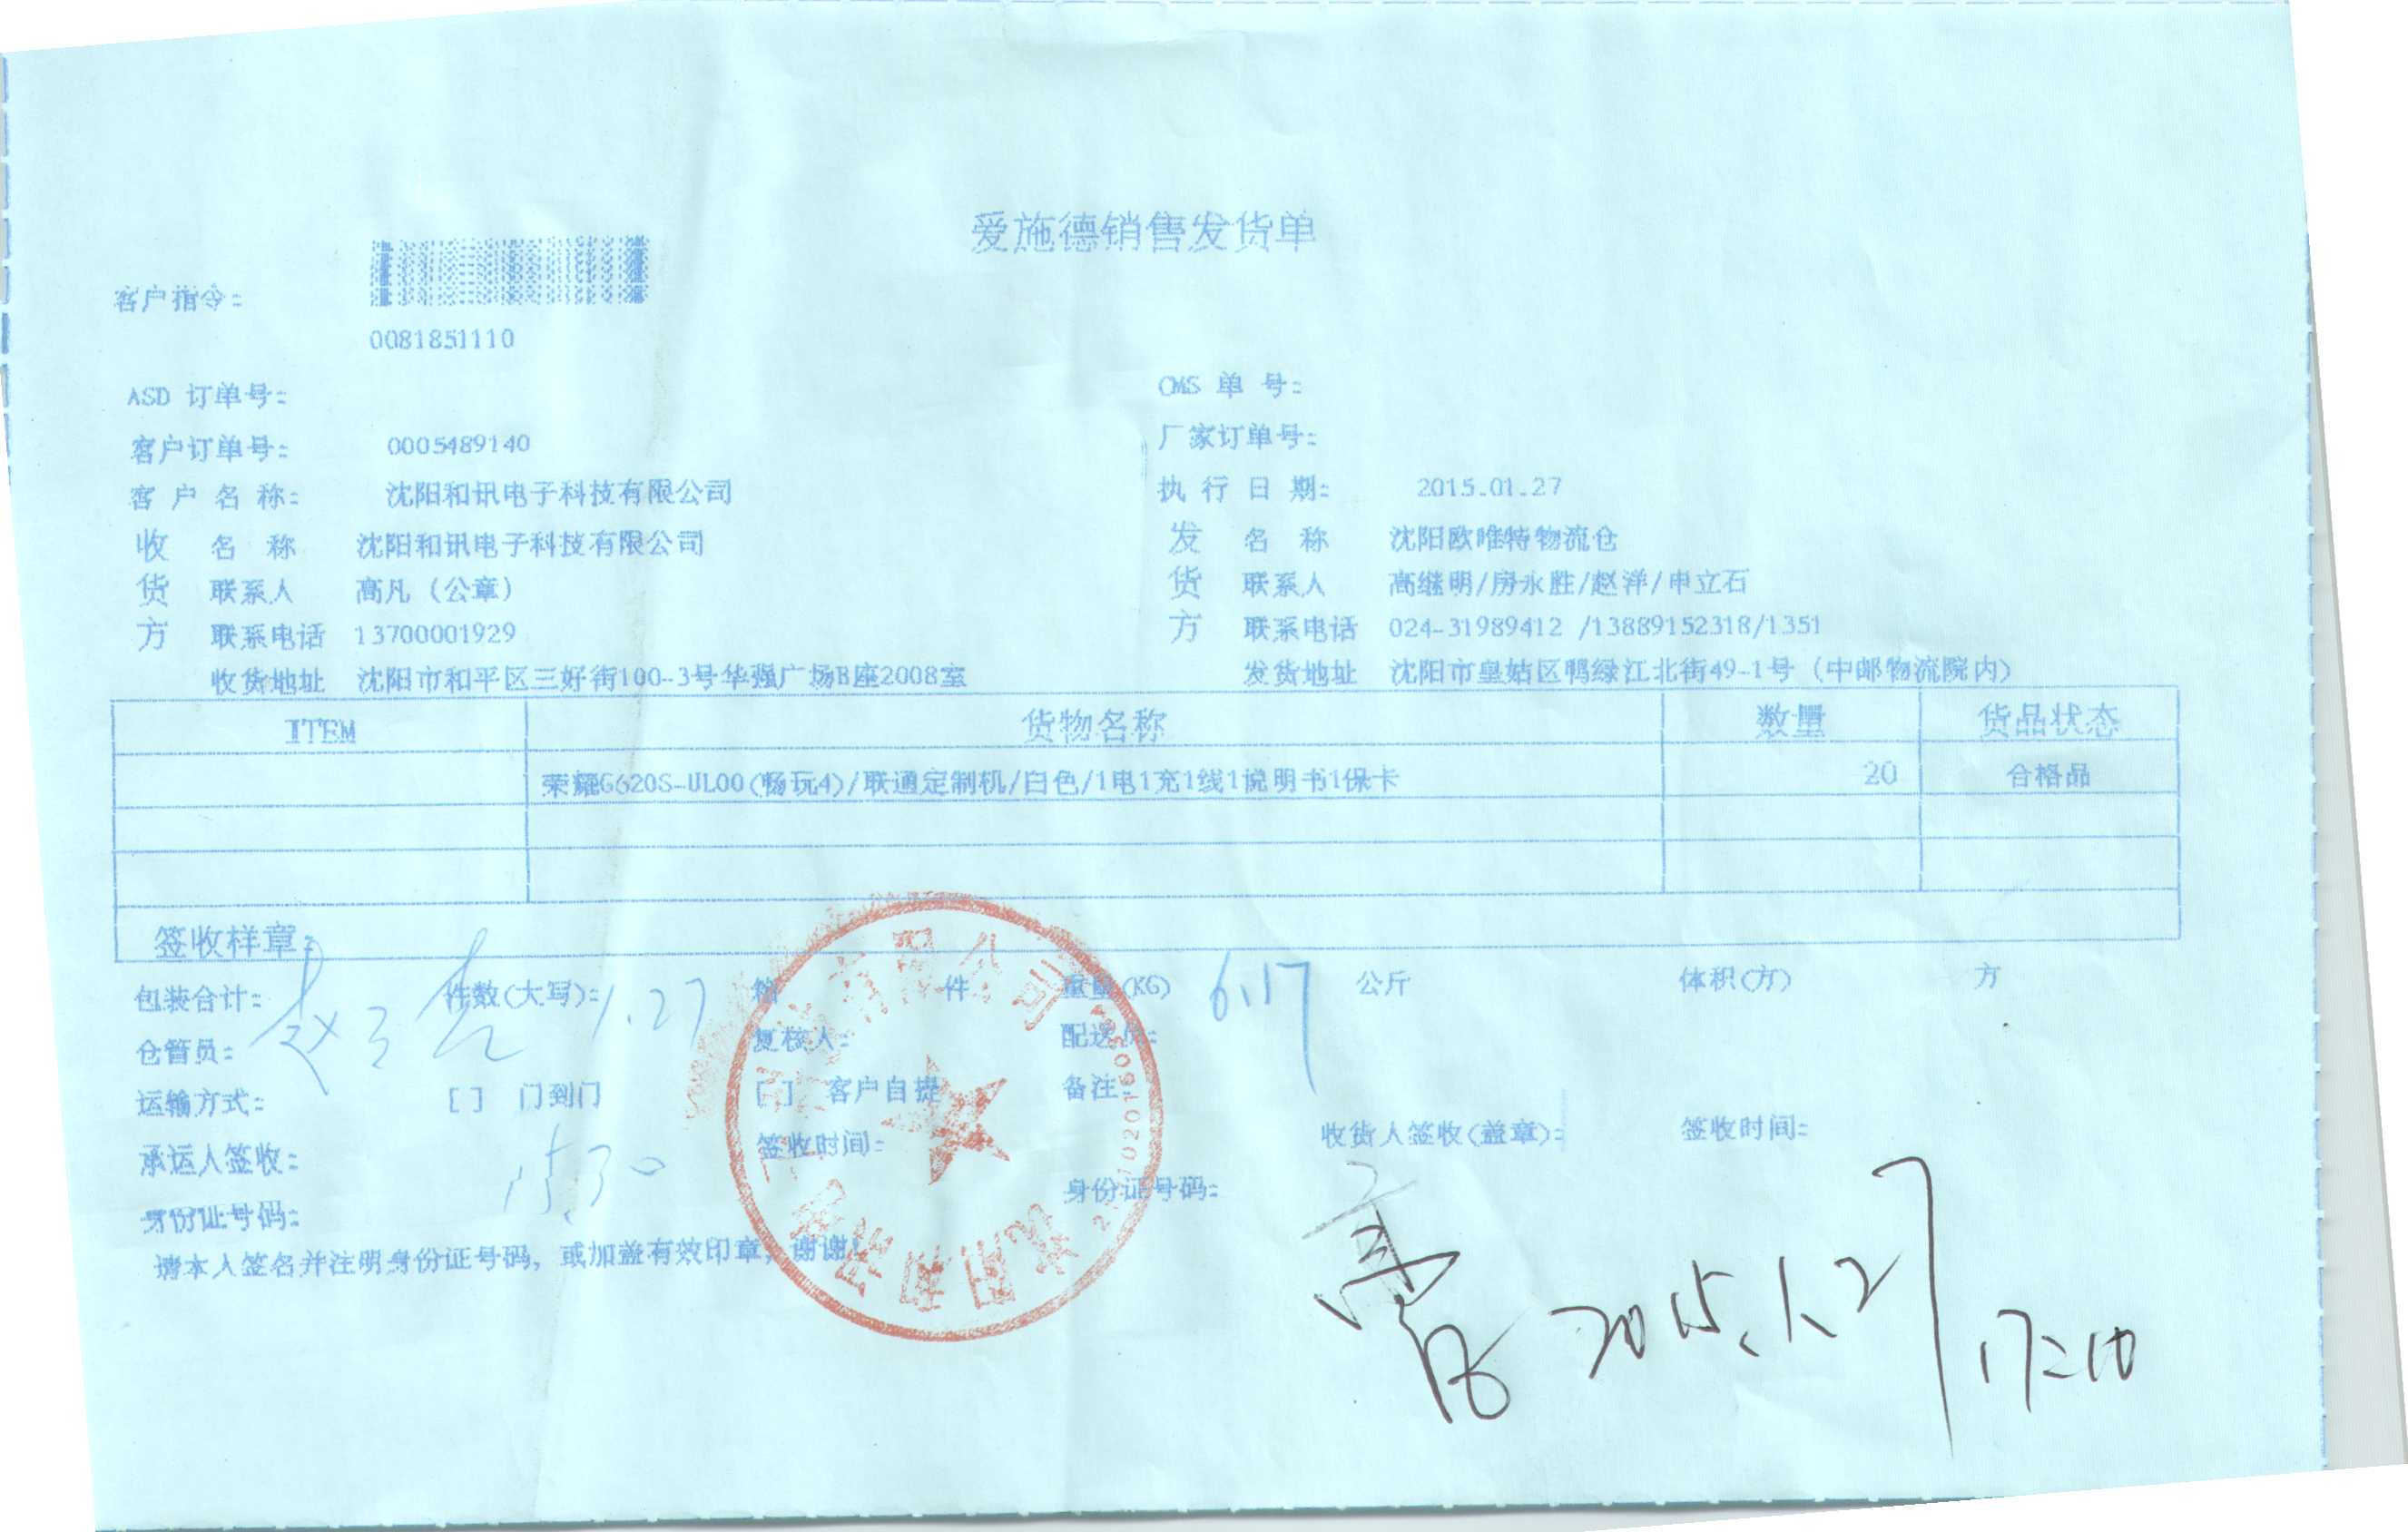 爱施德销售发货单
客户指令:
0081851110
ASD 订单号: CMS 单 号:
客户订单号: 0005489140 厂家订单号:
客 户 名 称: 沈阳和讯电子科技有限公司 执 行 日 期: 2015.01.27
收 名 称 沈阳和讯电子科技有限公司 发 名 称 沈阳欧唯特物流仓
货 联系人 高凡 (公章) 货 联系人 高继明/房永胜/赵洋/申立石
方 联系电话 13700001929 方 联系电话 024-31989412 /13889152318/1351
收货地址 沈阳市和平区三好街100-3号华强广场B座2008室 发货地址 沈阳市皇姑区鸭绿江北街49-1号 (中邮物流院内)
ITEM 货物名称 数量 货品状态
荣耀G620S-UL00(畅玩4)/联通定制机/白色/1电1充1线1说明书1保卡 20 合格品
签收样章:
包装合计: 件数(大写): 1.27 箱 件 重量(KG) 6.17 公斤 体积(方) 方
仓管员: 复核人: 配送人:
运输方式: [ ] 门到门 [ ] 客户自提 备注:
承运人签收: 15:30 签收时间: 收货人签收(盖章): 签收时间:
身份证号码: 身份证号码:
请本人签名并注明身份证号码, 或加盖有效印章, 谢谢!
2015.1.27 17:10